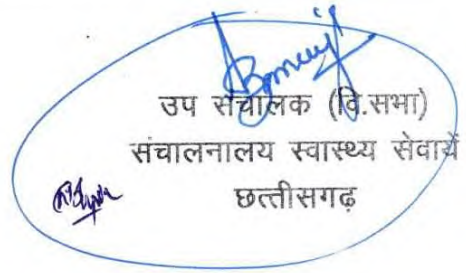 उप संचालक (वि.सभा)
संचालनालय स्वास्थ्य सेवायें
छत्तीसगढ़